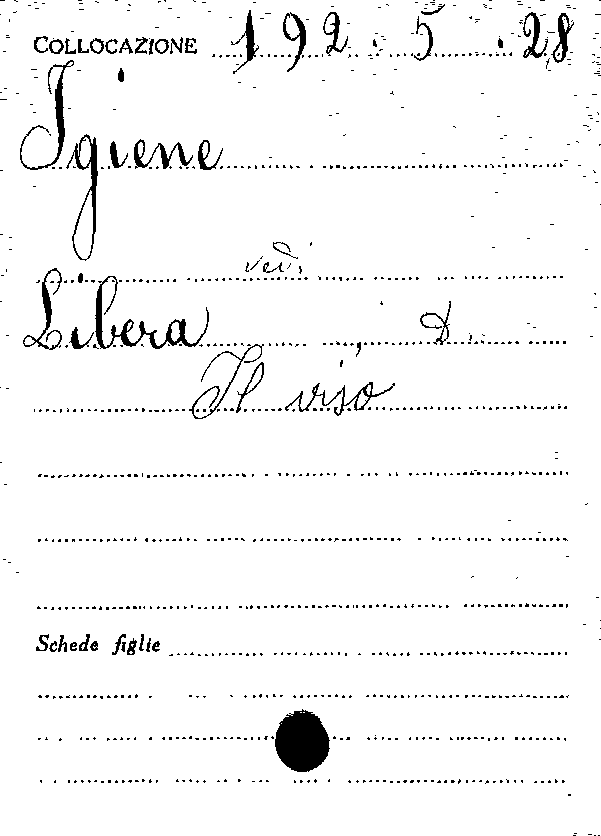 COLLOCAZIONE 192.5.28
Igiene
vedi
Libera, D.
Il viso
Schede figlie